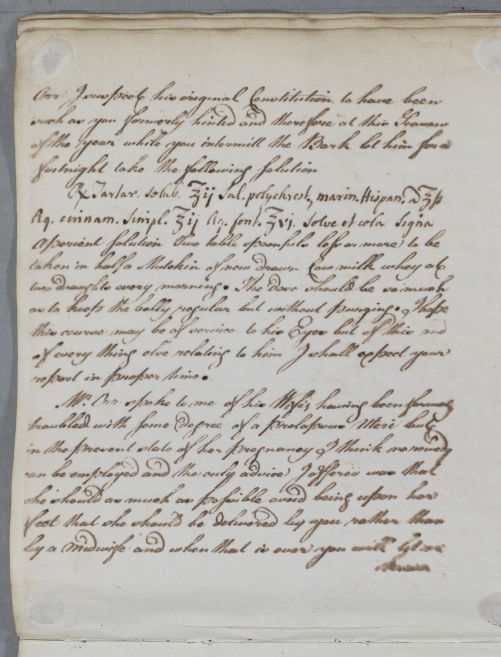 Orr I suspect his original Constitution to have been
such as you formerly hinted and therefore at this Season
of the year while you intermitt the Bark let him for a
fortnight take the following Solution
℞ Tartar. solub. ℥ij Sal. polychrest. marin. Hispan. a ℥ß
Aq. cinnam. simpl. ℥ij Aq. font. ℥vj. Solve et cola Signa
Aperient Solution Two table spoonfuls less or more to be
taken in half a Mutchkin of new drawn Cow milk whey at
two draughts every morning. The dose should be so much
as to keep the belly regular but without purging. I hope
this course may be of service to his Eyes but of this and
of every thing else relating to him I shall expect your
report in proper time.
Mr. Orr spoke to me of his Wife's having been formerly
troubled with some degree of a prolapsus Uteri but
in the present state of her pregnancy I think no remedy
can be employed and the only advice I offered was that
she should as much as possible avoid being upon her
feet that she should be delivered by you rather than
by a Midwife and when that is over you will let me